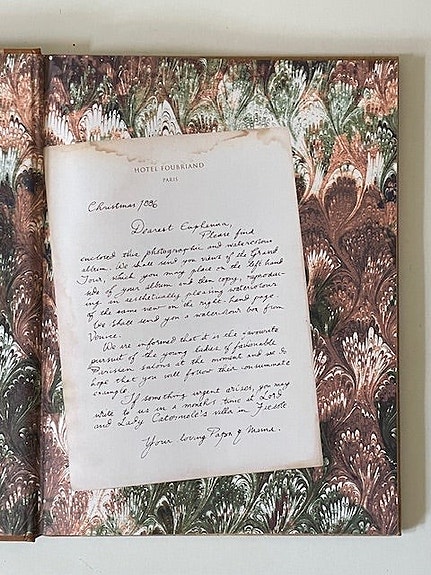 HOTEL FOUBRIAND
PARIS
Christmas 1886
Dearest Euphemia,
Please find
enclosed this photographic and watercolour
album. We shall send you views of the Grand
Tour, which you may place on the left hand
side of your album and then copy, reproduc-
ing in aesthetically pleasing watercolours
of the same view on the right-hand page.
We shall send you a watercolour box from
Venice.
We are informed that it is the favourite
pursuit of the young ladies of fashionable
Parisian salons at the moment and we do
hope that you will follow their consummate
example.
If something urgent arises, you may
write to us in a month's time at Lord
and Lady Catermole's villa in Fiesole
Your loving Papa & Mama.